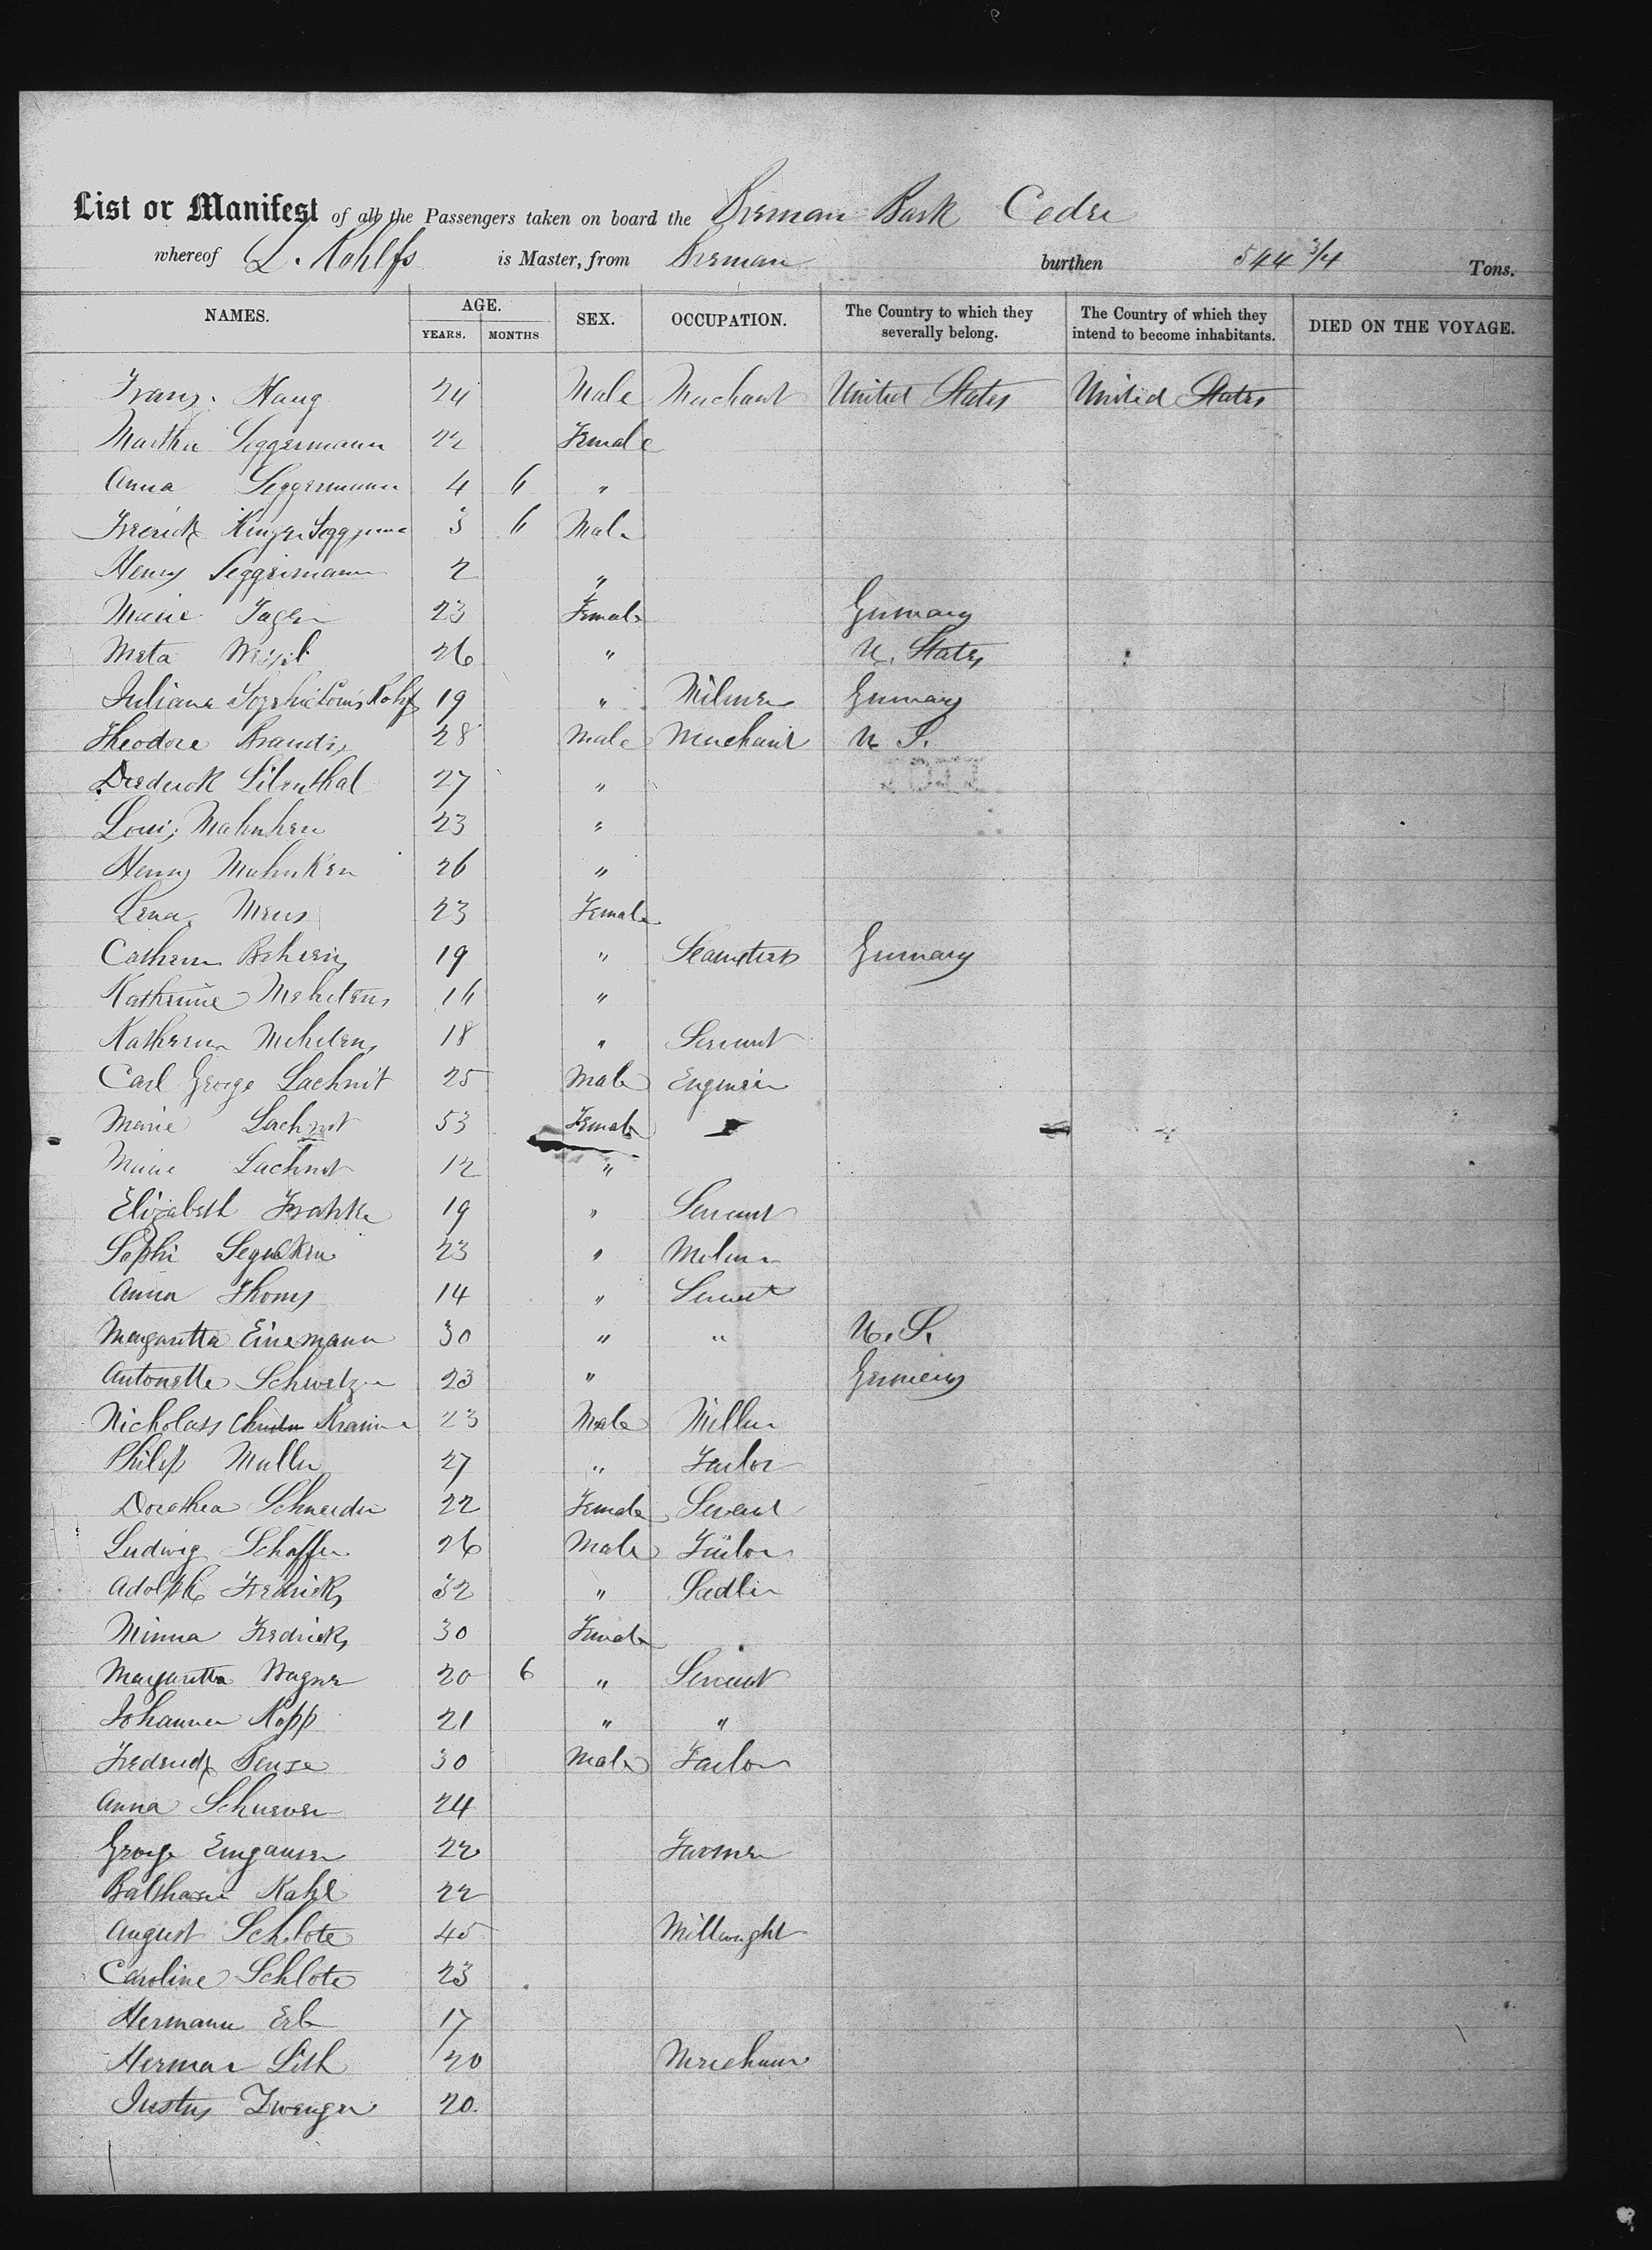 List or Manifest of all the Passengers taken on board the Breman Bark Cedre
whereof L. Rohlfs is Master, from Breman burthen 544 3/4 Tons.
NAMES. AGE. SEX. OCCUPATION. The Country to which they severally belong. The Country of which they intend to become inhabitants. DIED ON THE VOYAGE.
YEARS. MONTHS
Franz. Haug 24 Male Merchant United States United States
Martha Seggermann 22 Female
Anna Seggermann 4 6 "
3 6 Male
Henry Seggermann 2 "
Marie Jager 23 Female Germany
Meta 26 " U. States
Juliana Sophie Louis Rohlfs 19 " Milner Germany
Theodore Brandis 28 Male Merchant U S.
Diederick Lilenthal 27 "
Louis Mahnken 23 "
Henry Mahnken 26 "
Lena Meus 23 Female
Cathern Behrens 19 " Seamstress Germany
Kathrine Mehrtens 16 "
Katherin Mehrtens 18 " Servant
Carl George Lachnit 25 Male Engineer
Marie Lachnit 53 Female
Marie Lachnit 12 "
Elizabeth Frahke 19 " Servant
Sophi Segelken 23 " Milner
Anna Thoms 14 " Servant
Margaretta Einemann 30 " " U. S.
Antonette Schwelzer 23 " Germany
Nicholass Kramer 23 Male Miller
Philip Muller 27 " Tailor
Dorothea Schneider 22 Female Servant
Ludwig Schaffer 26 Male Tailor
Adolph Fredricks 32 " Sadler
Minna Fredricks 30 Female
Margaretta Wagner 20 6 " Servant
Johanna Kopp 21 " "
Fredrick Sense 30 Male Tailor
Anna Schuever 24
George 22 Farmer
Balthaser Kahl 22
August Schlote 45 Millwright
Caroline Schlote 23
Hermann Erb 17
Herman Lith 20 Merchant
Justus Zwenger 20.